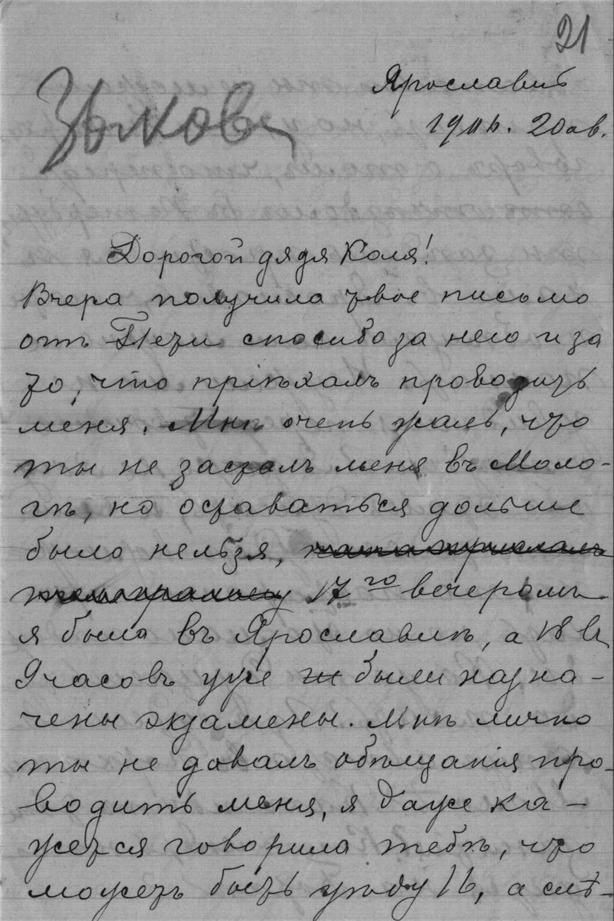 21
Зыкова
Ярославль
20 ав.
Дорогой дядя Коля!
Вчера получила твое письмо
отъ Пети спосибо за него и за
то, что пріѣхалъ проводить
меня. Мнѣ очень жаль, что
ты не засталъ меня въ Моло-
гѣ, но оставаться дольше
было нельзя,
17го вечеромъ
я была въ Ярославлѣ, а 18 в
9 часовъ уже были назна-
чены экзамены. Мнѣ лично
ты не давалъ обѣщанія про-
водить меня, я даже ка-
жется говорила тебѣ, что
можетъ быть уѣду 16, а слѣ-